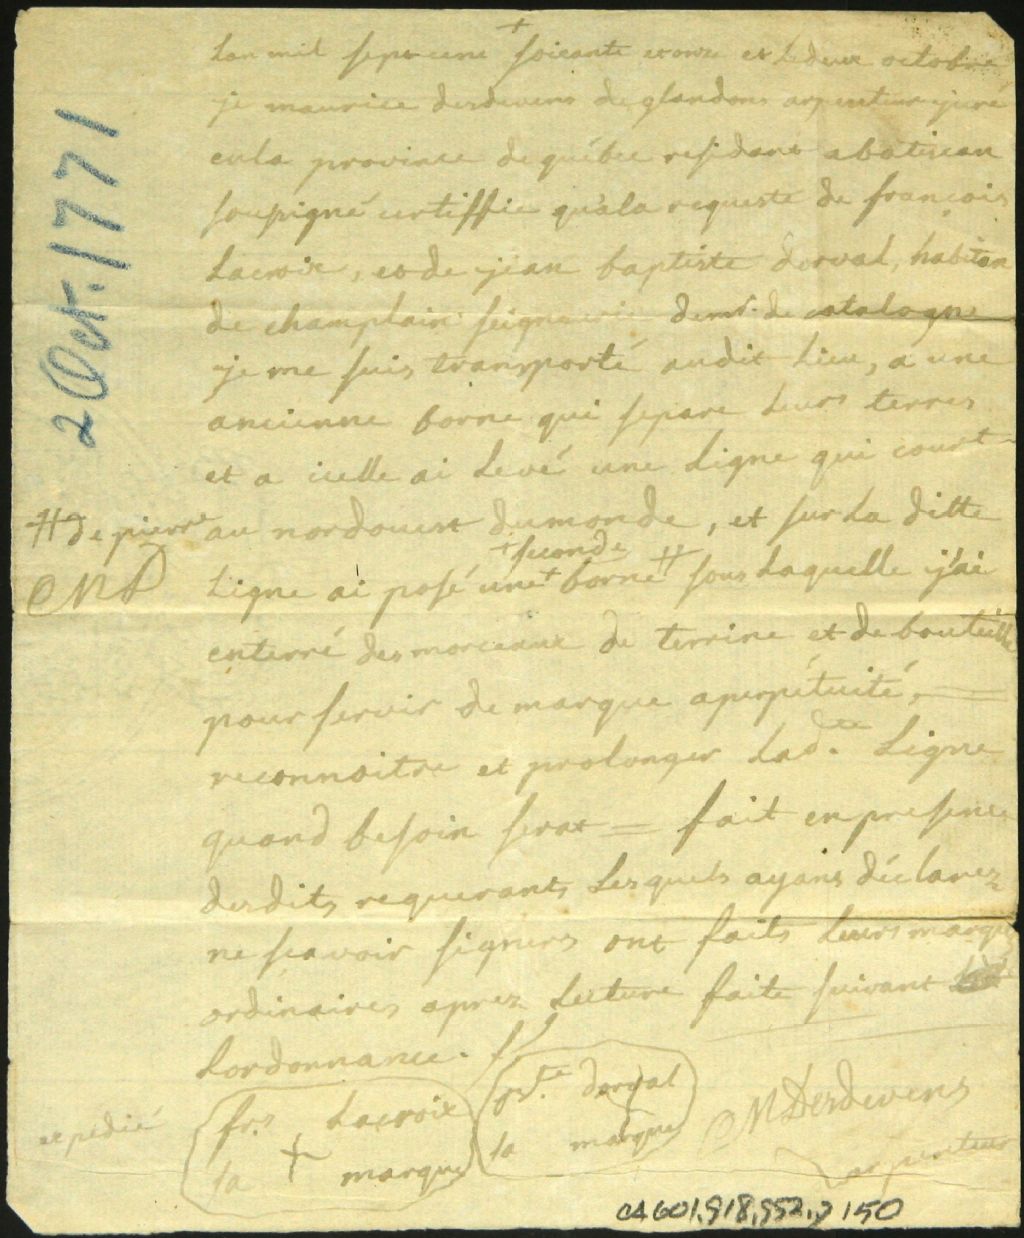 +
Lan mil sept cent soicante et onze et le deux octobre
je maurice desdevens de glandons arpenteur juré
en la province de québec residant a batiscan
soupigné certiffie qu'a la requeste de françois
Lacroix, et de jean baptiste dorval, habitan
de champlain seigneurie de mr. de catalogne
je me suis transporté audit lieu, a une
ancienne borne qui separe leurs terres
et a icelle ai levé une ligne qui court
au nordouest du monde, et sur la ditte
+ seconde
ligne ai posé une + borne # sous laquelle j'ai
# de pierre
MD
enterré des morceaux de terrine et de bouteille
pour servir de marque a perpétuité, =
reconnoitre et prolonger lad.ee ligne
quand besoin serat = fait en presence
desdits requerants lesquels ayans déclarez
ne scavoir signers ont faits leurs marques
ordinaires aprez lecture faite suivant
Lordonnance.
frs. Lacroix
sa + marque
bte. dorval
sa marque
MDesdevens
arpenteur
expedié
2 Oct. 1771
CA 601, S18, SS2, D 150